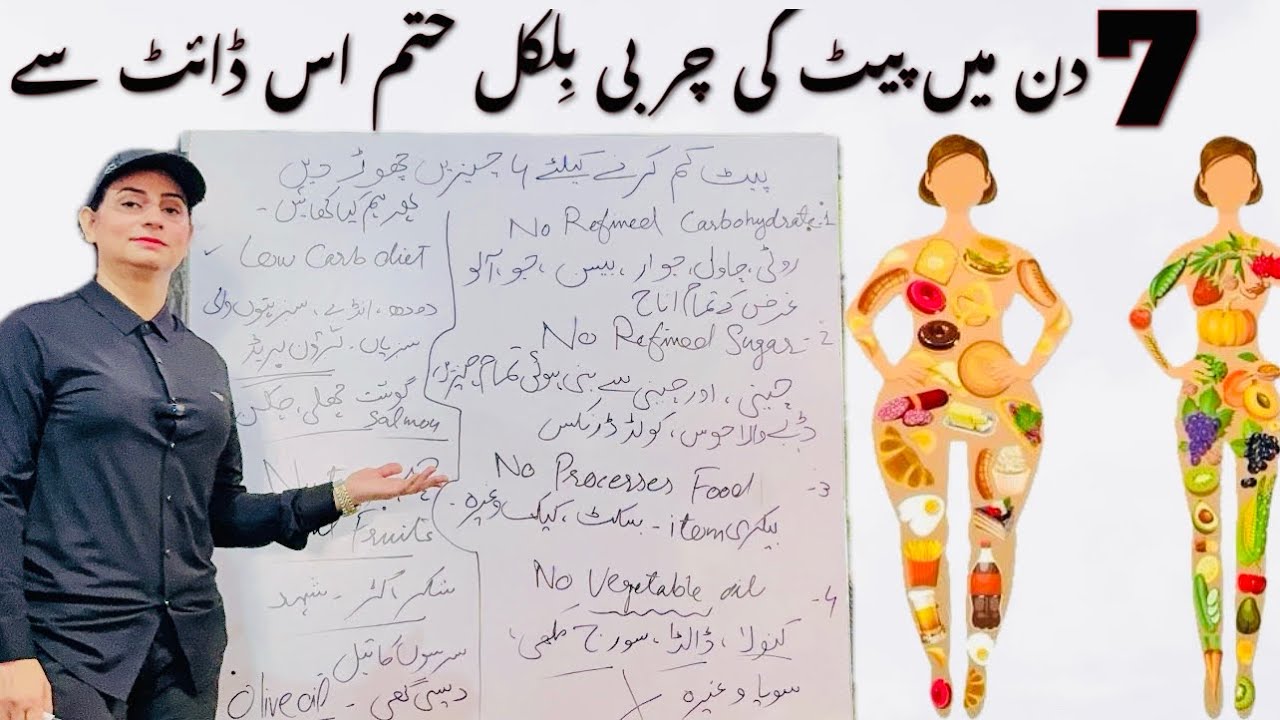 7 دن میں پیٹ کی چربی بِلکل ختم اس ڈائٹ سے
پیٹ کم کرنے کیلئے 4 چیزیں چھوڑ دیں
No Refined Carbohydrate 1
روٹی، چاول، جوار، بیسن، جو، آلو
غرض کے تمام اناج
No Refined Sugar - 2
چینی، اور چینی سے بنی ہوئی تمام چیزیں،
ڈبے والا جوس، کولڈ ڈرنکس
No Processes Food - 3
بیکری item - بسکٹ، کیک وغیرہ -
No Vegetable oil - 4
کنولا، ڈالڈا، سورج مکھی،
سویا وغیرہ
پھر ہم کیا کھائیں -
Low Carb diet
دودھ، انڈے، سبز پتوں والی
سبزیاں - براؤن بریڈ
گوشت مچھلی، چکن
Salmon
Fruits
شکر - شہد
سرسوں کا تیل
Olive oil - دیسی گھی